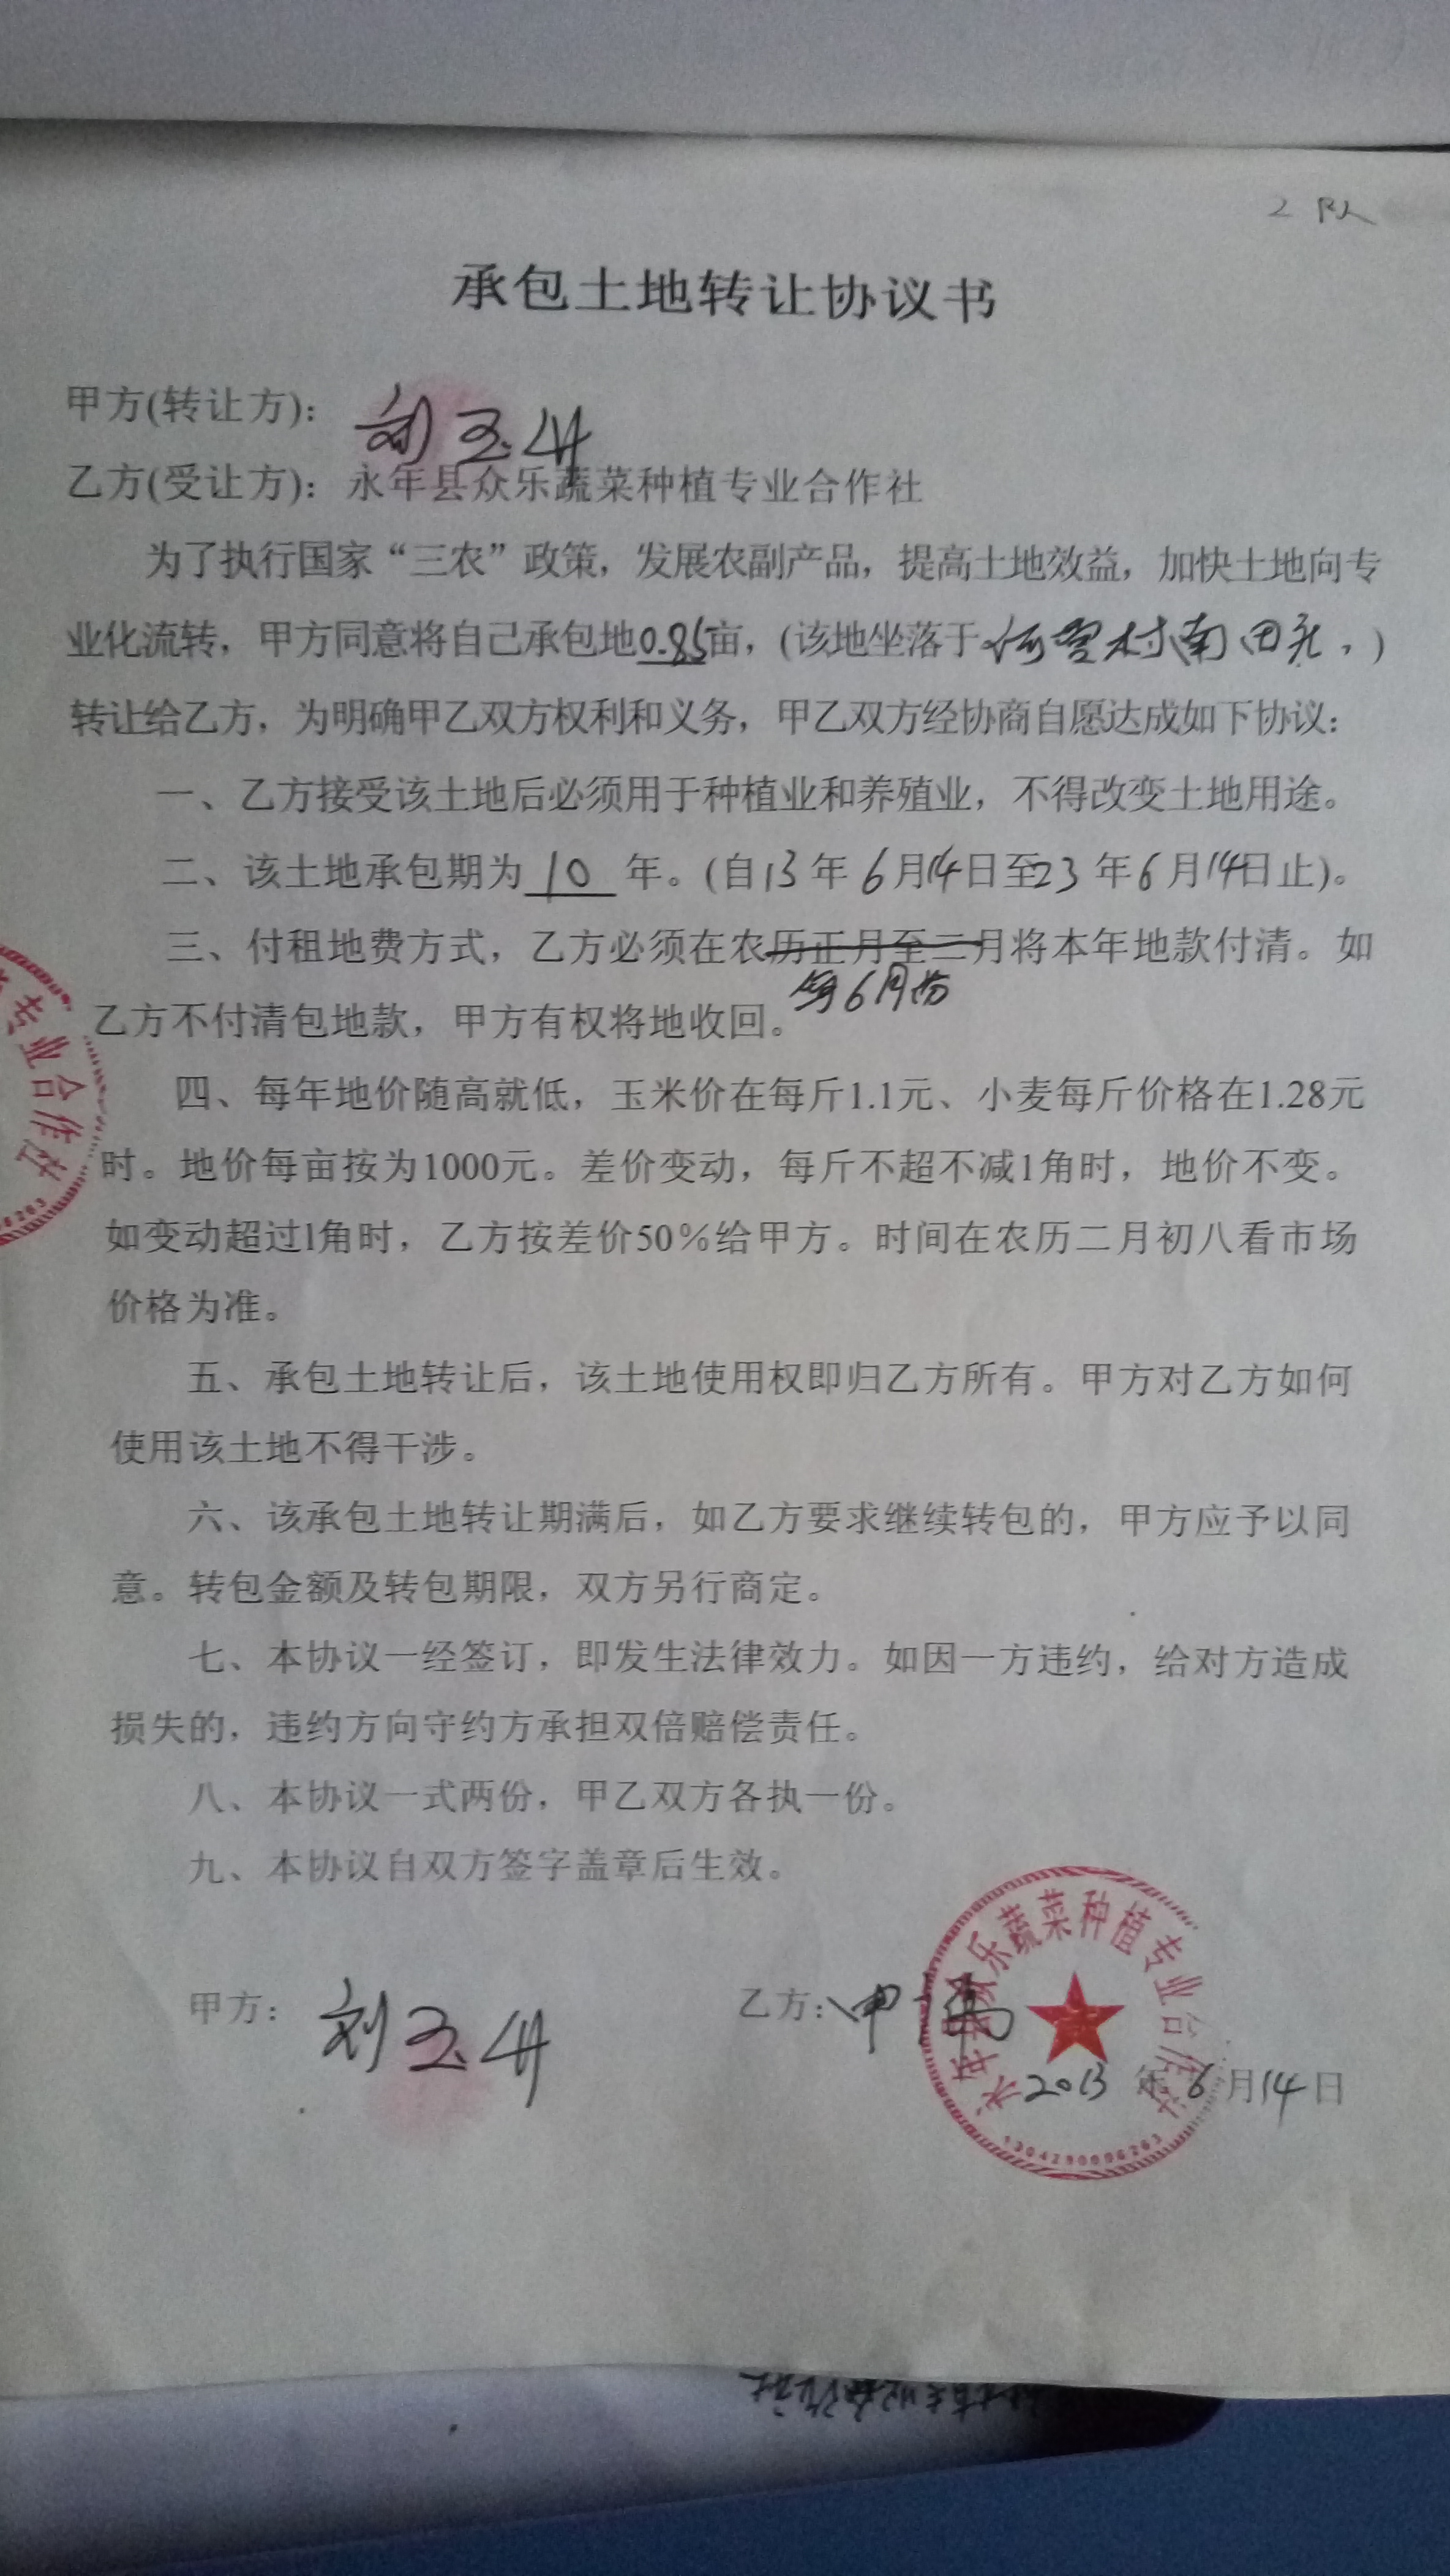 2 队
承包土地转让协议书
甲方(转让方)：刘玉
乙方(受让方)：永年县众乐蔬菜种植专业合作社
为了执行国家“三农”政策，发展农副产品，提高土地效益，加快土地向专
业化流转，甲方同意将自己承包地0.85亩，(该地坐落于村南，)
转让给乙方，为明确甲乙双方权利和义务，甲乙双方经协商自愿达成如下协议：
一、乙方接受该土地后必须用于种植业和养殖业，不得改变土地用途。
二、该土地承包期为 10 年。(自13年6月14日至23年6月14日止)。
三、付租地费方式，乙方必须在农历正月至二月将本年地款付清。如
6月份
乙方不付清包地款，甲方有权将地收回。
四、每年地价随高就低，玉米价在每斤1.1元、小麦每斤价格在1.28元
时。地价每亩按为1000元。差价变动，每斤不超不减1角时，地价不变。
如变动超过1角时，乙方按差价50%给甲方。时间在农历二月初八看市场
价格为准。
五、承包土地转让后，该土地使用权即归乙方所有。甲方对乙方如何
使用该土地不得干涉。
六、该承包土地转让期满后，如乙方要求继续转包的，甲方应予以同
意。转包金额及转包期限，双方另行商定。
七、本协议一经签订，即发生法律效力。如因一方违约，给对方造成
损失的，违约方向守约方承担双倍赔偿责任。
八、本协议一式两份，甲乙双方各执一份。
九、本协议自双方签字盖章后生效。
甲方：刘玉
乙方：
2013年6月14日
永年县众乐蔬菜种植专业合作社
1304290006203
专业合作社